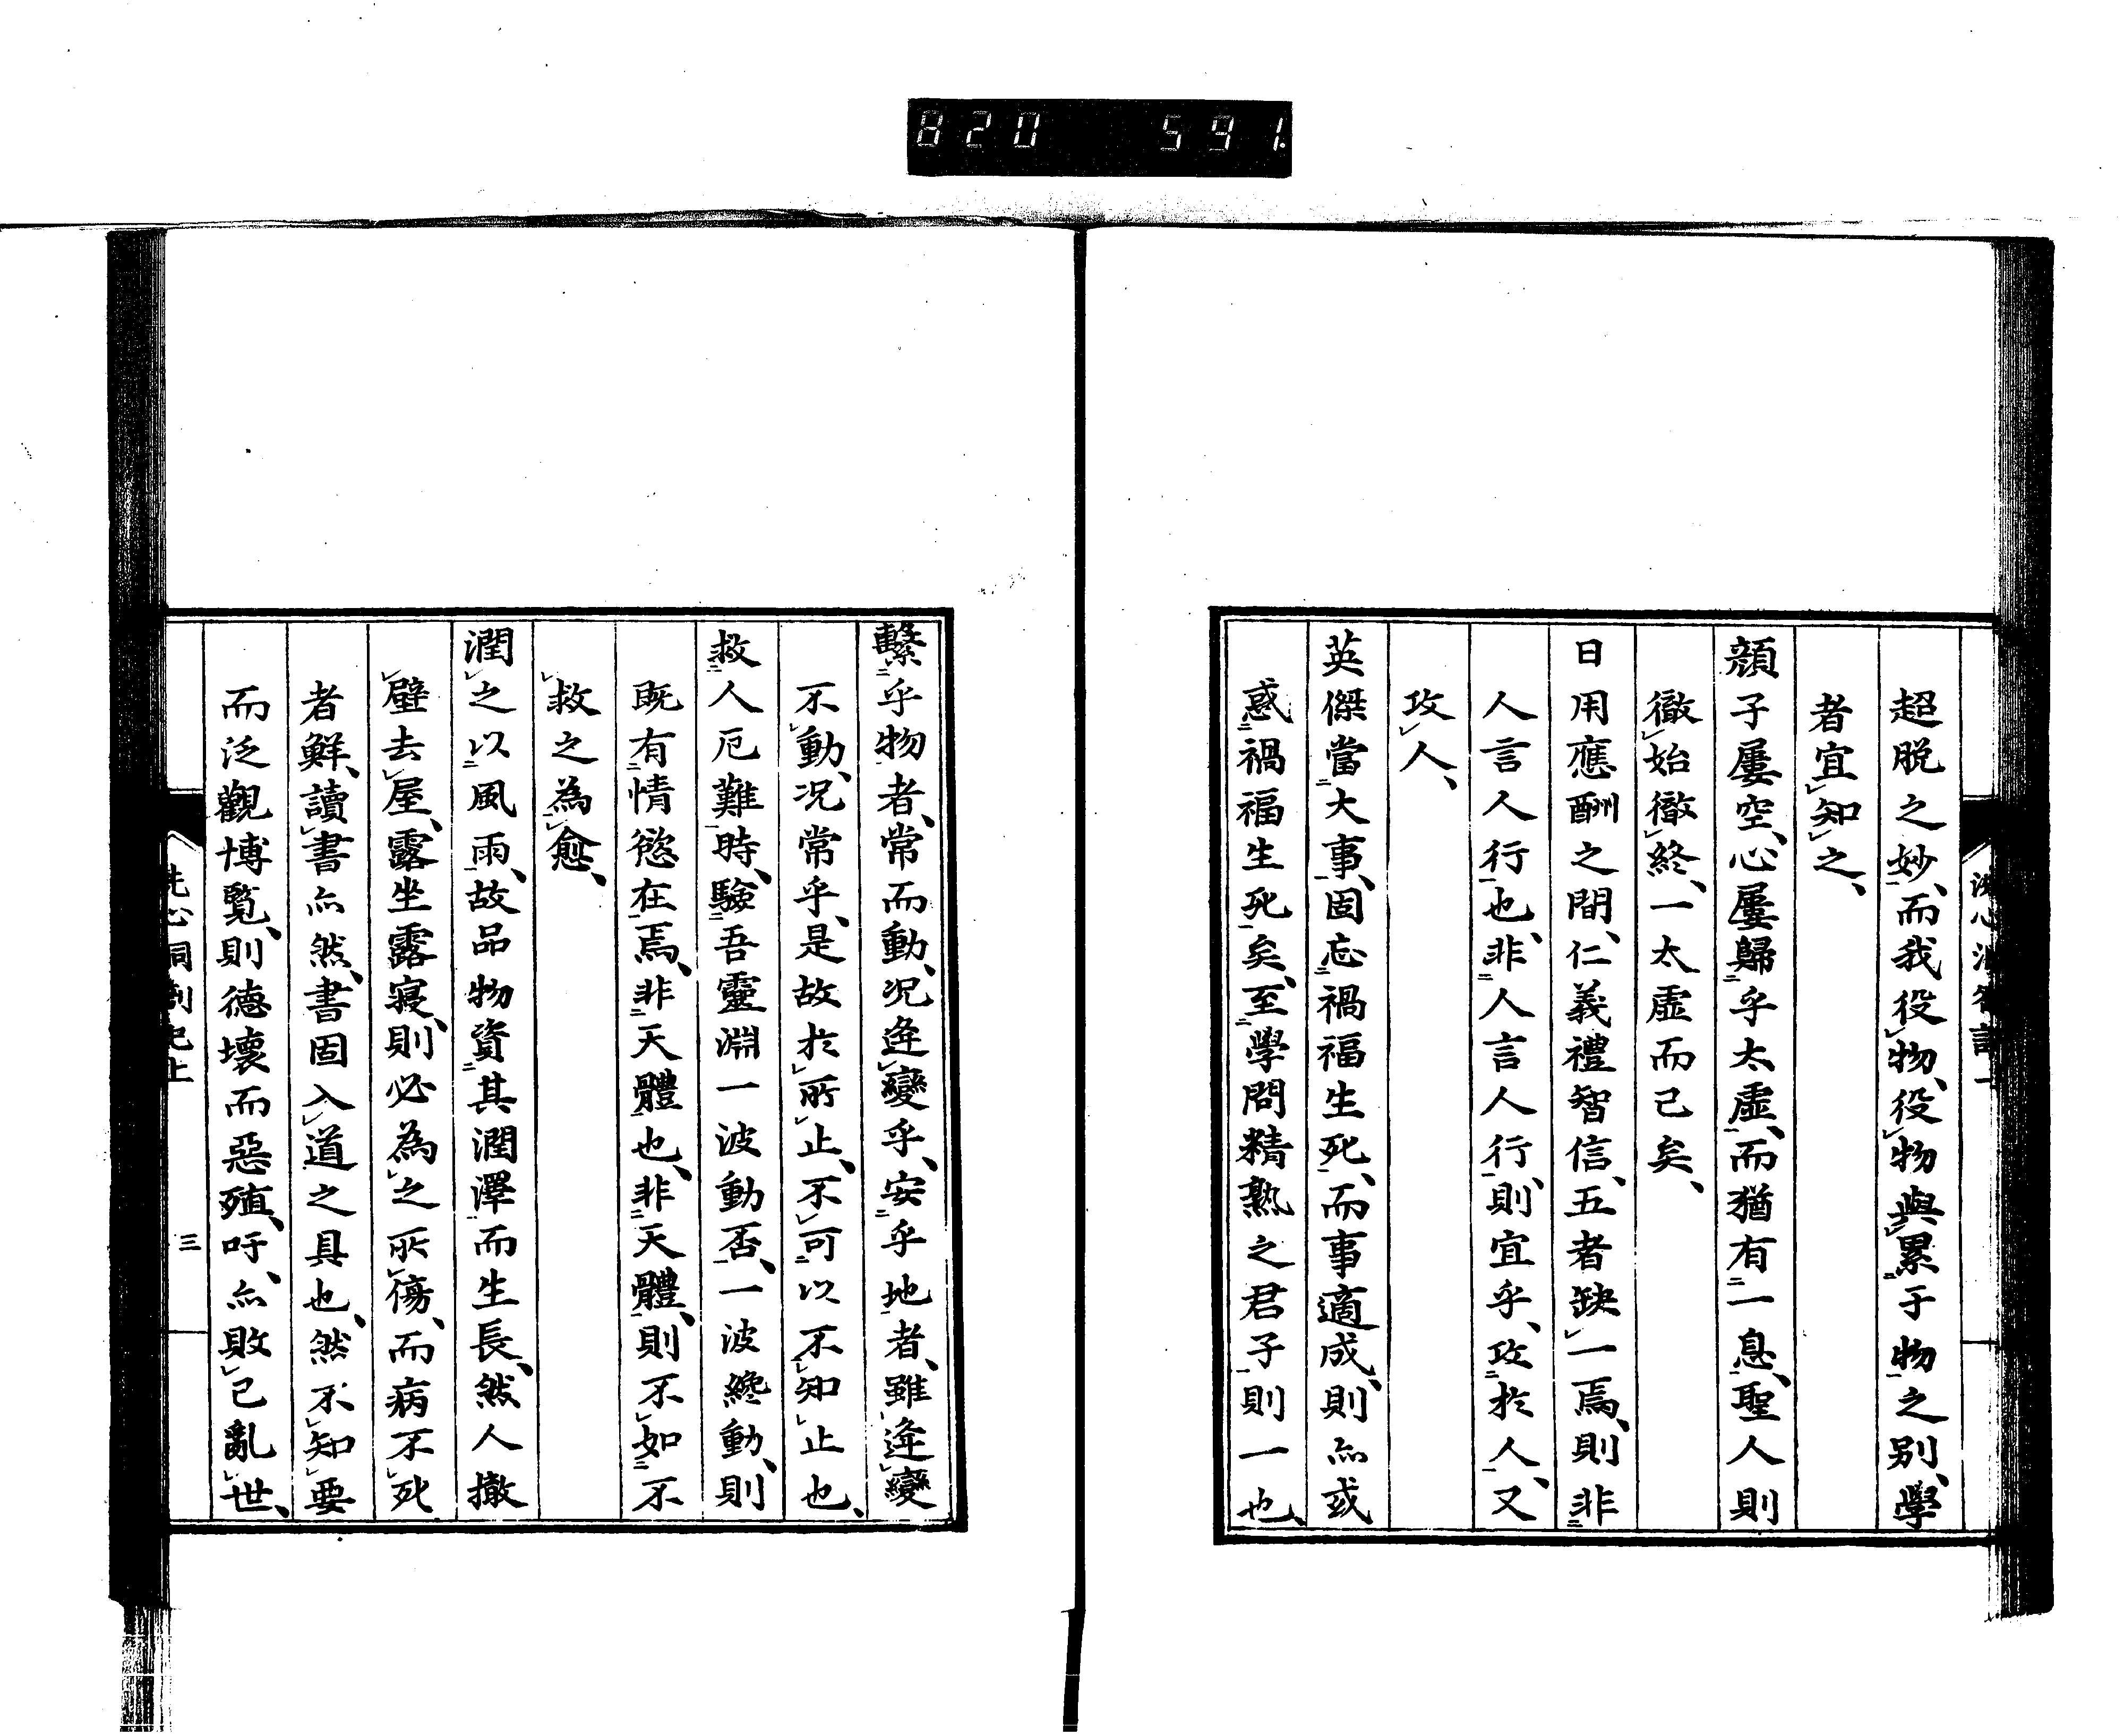 820 591.
超脱之妙、而我役物、役物與累于物之別、學
者宜知之、
顔子屢空、心屢歸乎太虛、而猶有一息、聖人則
徹始徹終、一太虛而己矣、
日用應酬之間、仁義禮智信、五者缺一焉、則非
人言人行也、非人言人行、則宜乎、攻於人、又
攻人、
英傑當大事、固忘禍福生死、而事適成、則亦或
惑禍福生死矣、至學問精熟之君子則一也、
繫乎物者、常而動、况逢變乎、安乎地者、雖逢變
不動、况常乎、是故於所止、不可以不知止也、
救人厄難時、驗吾靈淵一波動否、一波纔動、則
既有情慾在焉、非天體也、非天體、則不如不
救之為愈、
潤之以風雨、故品物資其潤澤而生長、然人撤
壁去屋、露坐露寢、則必為之所傷、而病不死
者鮮、讀書亦然、書固入道之具也、然不知要
而泛觀博覧、則德壞而惡殖、吁、亦敗己亂世、
洗心洞劄記上
三